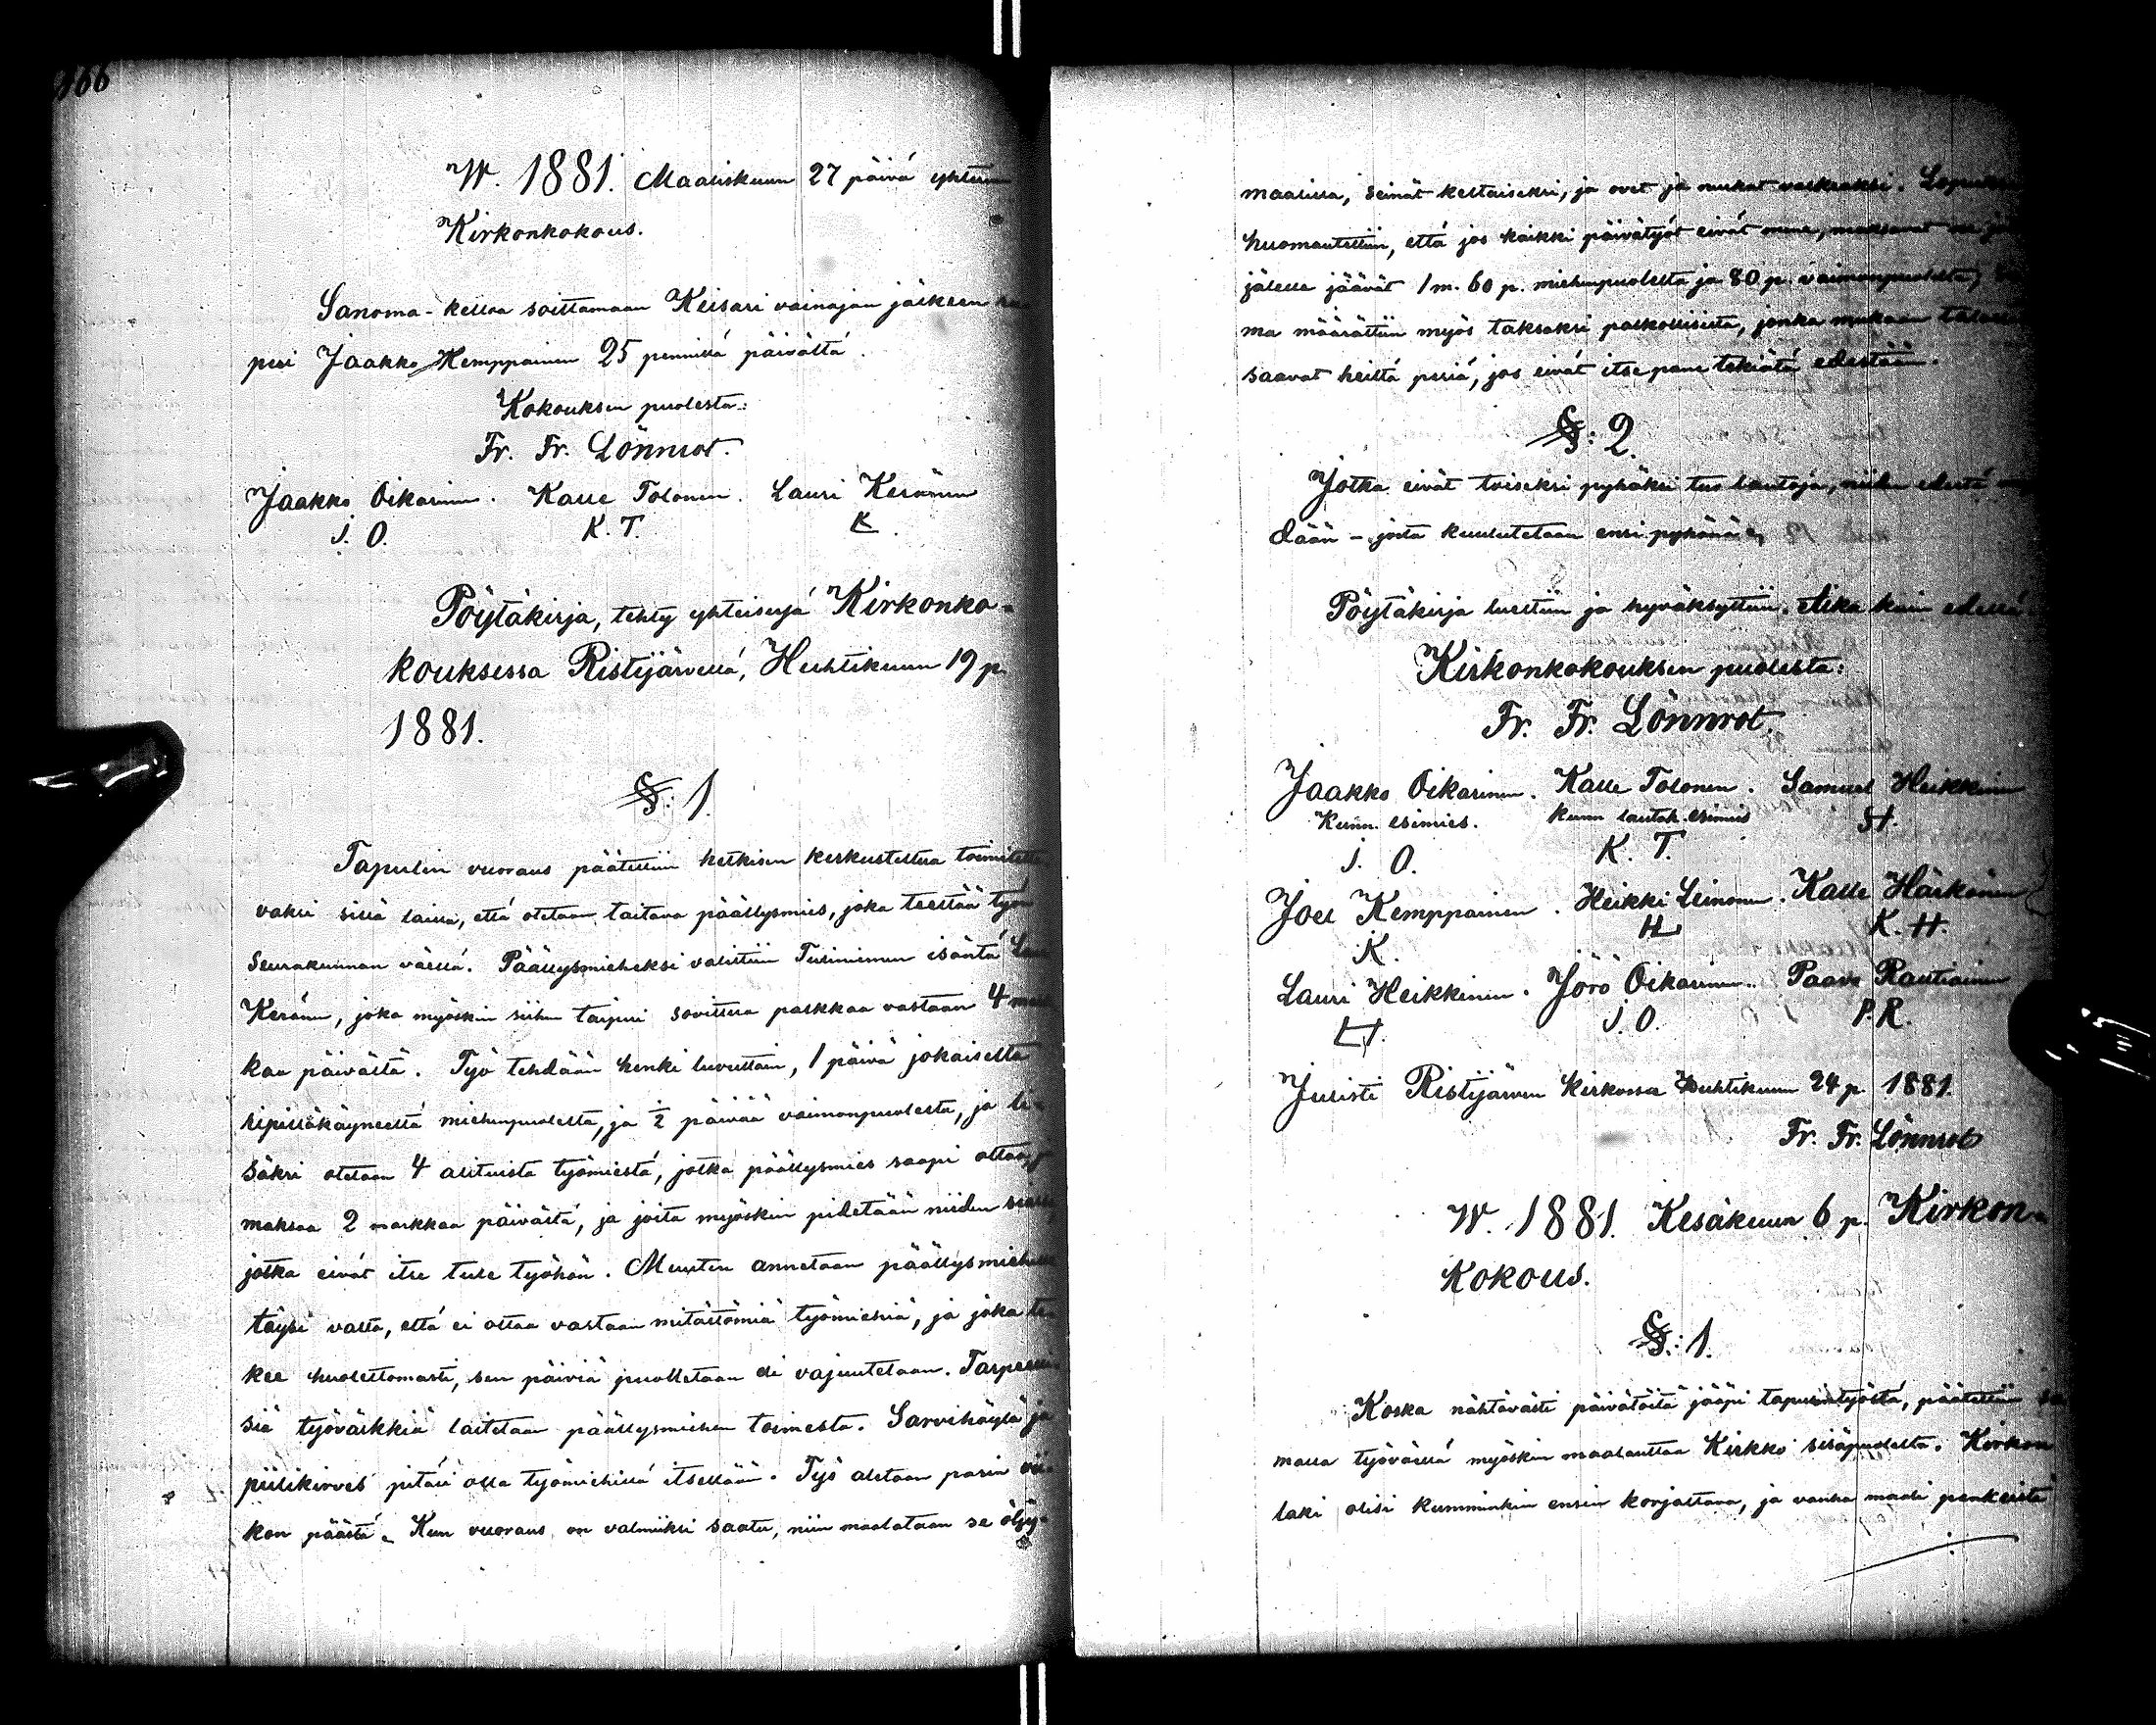 166
W. 1881. Maaliskuun 27 päivä yhteinen
Kirkonkokous.
Sanoma-kelloa soittamaan Keisari vainajan jälkeen
pui Jaakko Kemppainen 25 pennillä päivältä.
Kokouksen puolesta:
Fr. Fr. Lönnrot.
Jaakko Oikarinen. Kalle Tolonen. Lauri Keränen
J. O. K. T. K
Pöytäkirja, tehty yhteisessä Kirkonko-
kouksessa Ristijärvellä, Huhtikuun 19 p.
1881.
§: 1.
Tapulin vuoraus päätettiin hetkisen keskusteltua toimitetta
vaksi sillä lailla, että otetaan taitava päällysmies, joka teettää työn
Seurakunnan väellä. Päällysmieheksi valittiin Tuliniemen isäntä
Keränen, joka myöskin siihen taipui sovittua palkkaa vastaan 4
kaa päivältä. Työ tehdään henki luvuttain, 1 päivä jokaiselta
ripilläkäyneeltä miehenpuolelta, ja ½ päivää vaimonpuolelta, ja li-
säksi otetaan 4 alituista työmiestä, jotka päällysmies saapi ottaa, ja
maksaa 2 markkaa päivältä, ja joita myöskin pidetään niiden siassa
jotka eivät itse tule työhön. Muuten annetaan päällysmiehelle
täysi valta, että ei ottaa vastaan mitättömiä työmiehiä, ja joka te-
kee huolettomasti, sen päiviä puolletaan eli vajuutetaan. Tarpeelli-
siä työväkkiä laitetaan päällysmiehen toimesta. Sarvihöylä ja
piilikirves pitäisi olla työmiehillä itsellään. Työ aletaan parin vii-
kon päästä. Kun vuoraus on valmiiksi saatu, niin maalataan se öljy-
maalilla, seinät keltaiseksi, ja ovet ja nurkat valkeaksi. Lopuksi
huomautettiin, että jos kaikki päivätyöt eivät mene, maksavat ne
jälelle jäävät 1 m. 60 p. miehenpuolelta ja 80 p. vaimonpuolelta,
ma määrättiin myös taksaksi palkollisista, jonka mukaan talolliset
saavat heiltä periä, jos eivät itse pane tekiätä edestään.
§: 2.
Jotka eivät toiseksi pyhäksi tuo lautoja, niiden edestä
dään - josta kuulutetaan ensi pyhänä.
Pöytäkirja luettiin ja hyväksyttiin. Aika kuin edellä.
Kirkonkokouksen puolesta:
Fr. Fr. Lönnrot.
Jaakko Oikarinen. Kalle Tolonen. Samuel Heikkinen
Kunn. esimies. kunn lautak. esimies SH.
J. O. K. T.
Joel Kemppainen. Heikki Leinonen. Kalle Härkönen
K. HL K. H.
Lauri Heikkinen. Jörö Oikarinen. Paavo Rautiainen
LH. J. O. P. R.
Julisti Ristijärven kirkossa Huhtikuun 24 p. 1881.
Fr. Fr. Lönnrot
W. 1881. Kesäkuun 6 p. Kirkon-
kokous.
§: 1.
Koska nähtävästi päivätöitä jääpi tapulintyöstä, päätettiin sa
malla työväellä myöskin maalauttaa Kirkko sisäpuolelta. Kirkon
laki olisi kumminkin ensin korjattava, ja vanha maali penkeistä